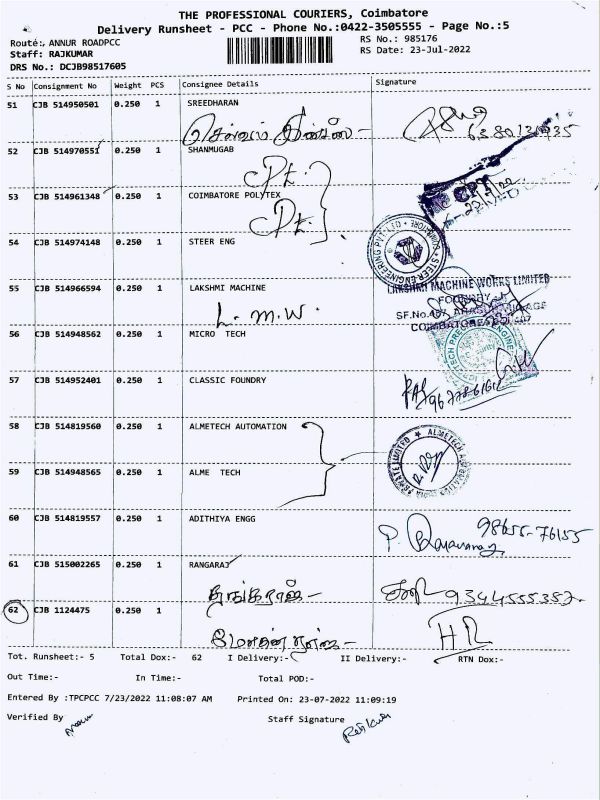 THE PROFESSIONAL COURIERS, Coimbatore
Delivery Runsheet - PCC - Phone No.:0422-3505555 - Page No.:5
Route:, ANNUR ROADPCC
RS No.: 985176
Staff: RAJKUMAR
RS Date: 23-Jul-2022
DRS No.: DCJB98517605
S No Consignment No Weight PCS Consignee Details Signature
51 CJB 514950501 0.250 1 SREEDHARAN
52 CJB 514970551 0.250 1 SHANMUGAB
53 CJB 514961348 0.250 1 COIMBATORE POLYTEX
54 CJB 514974148 0.250 1 STEER ENG
55 CJB 514966594 0.250 1 LAKSHMI MACHINE
LAKSHMI MACHINE WORKS LIMITED
FOUNDRY
L. M. W.
56 CJB 514948562 0.250 1 MICRO TECH
57 CJB 514952401 0.250 1 CLASSIC FOUNDRY
58 CJB 514819560 0.250 1 ALMETECH AUTOMATION
59 CJB 514948565 0.250 1 ALME TECH
60 CJB 514819557 0.250 1 ADITHIYA ENGG
98655-76155
61 CJB 515002265 0.250 1 RANGARAJ
9344555352
62 CJB 1124475 0.250 1
Tot. Runsheet:- 5 Total Dox:- 62 I Delivery:- II Delivery:- RTN Dox:-
Out Time:- In Time:- Total POD:-
Entered By :TPCPCC 7/23/2022 11:08:07 AM Printed On: 23-07-2022 11:09:19
Verified By Staff Signature